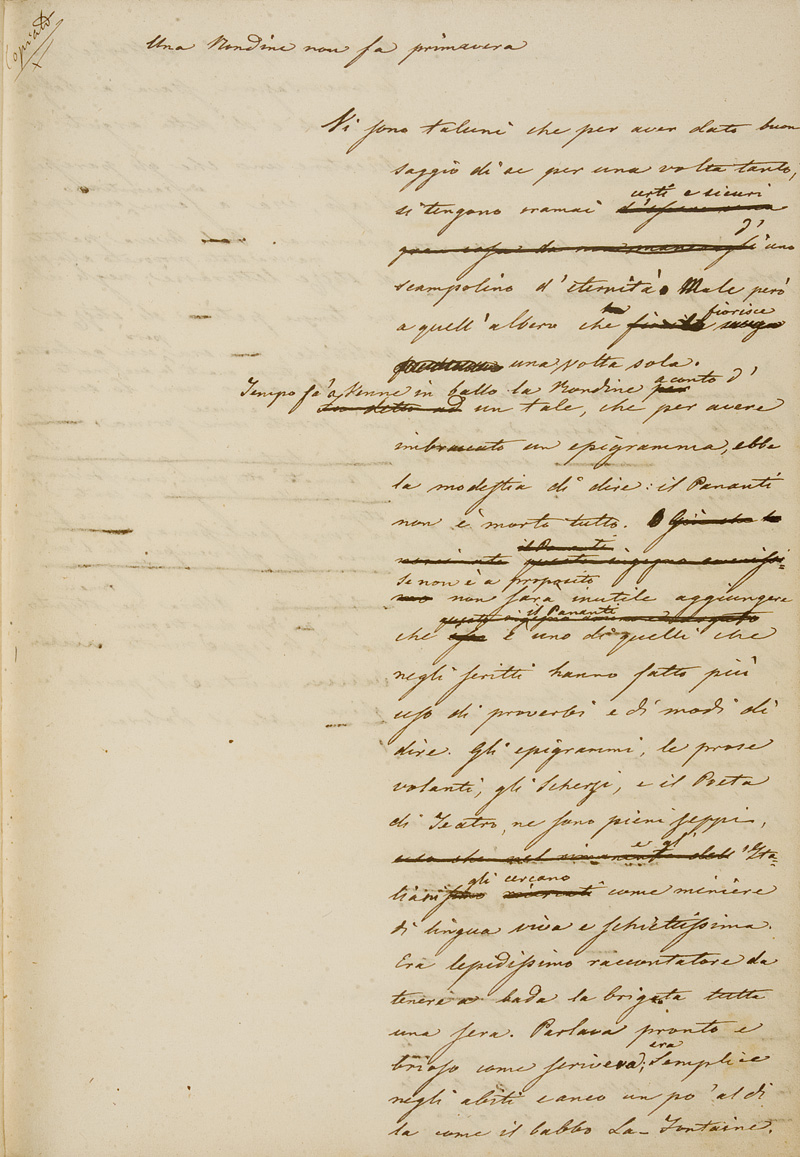 Copiato
Una Rondine non fa primavera
Vi sono taluni che per aver dato buon
saggio di se per una volta tanto,
certi e sicuri
si tengono oramai
d'
uno
scampolino d'eternità. Male però
fiorisce
a quell'albero che
una volta sola.
Tempo fa venne in ballo la Rondine a conto d'
un tale, che per avere
imbroccato un epigramma, ebbe
la modestia di dire: il Pananti
non è morto tutto. Già che
il Pananti
questo ingegno
se non è a proposito
non sarà inutile aggiungere
il Pananti
che è uno di quelli che
negli scritti hanno fatto più
uso di proverbi e di modi di
dire. Gli epigrammi, le prose
volanti, gli Scherzi, e il Poeta
di Teatro, ne sono pieni zeppi,
e gl'
Ita-
gli cercano
liani come miniere
di lingua viva e schiettissima.
Era lepidissimo raccontatore da
tenere a bada la brigata tutta
una sera. Parlava pronto e
era
brioso come scriveva; semplice
negli abiti e anco un po' al di
la come il babbo La-Fontaine.